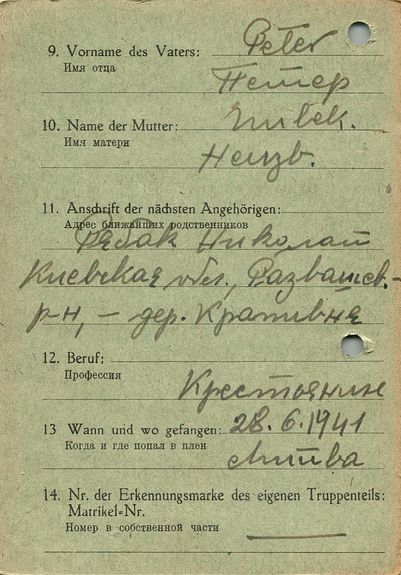 9. Vorname des Vaters: Peter
Имя отца
Петер
10. Name der Mutter: Unbek.
Имя матери
Неизв.
11. Anschrift der nächsten Angehörigen:
Адрес ближайших родственников
Рябак Николай
Киевская обл.,
р-н, – дер. Крапивня
12. Beruf:
Профессия
Крестьянин
13 Wann und wo gefangen: 28.6.1941
Когда и где попал в плен
Литва
14. Nr. der Erkennungsmarke des eigenen Truppenteils:
Matrikel-Nr.
Номер в собственной части